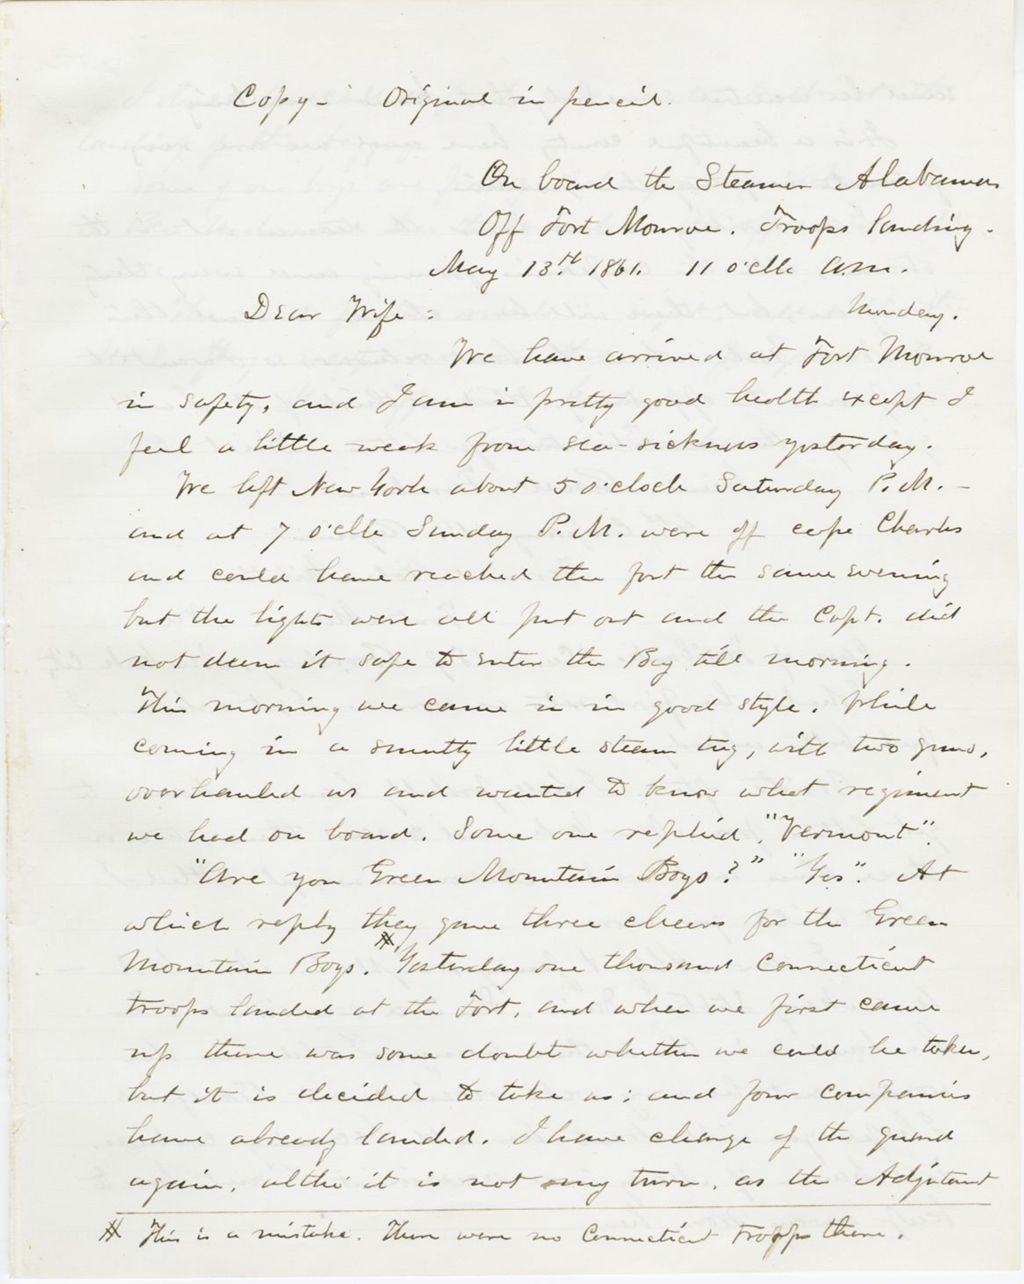 Copy - Original in pencil.
On board the Steamer Alabama
Off Fort Monroe. Troops landing.
May 13th 1861. 11 o'clk a.m.
Monday.
Dear Wife:
We have arrived at Fort Monroe
in safety, and I am in pretty good health except I
feel a little weak from sea-sickness yesterday.
We left New York about 5 o'clock Saturday P.M. -
and at 7 o'clk Sunday P.M. were off cape Charles
and could have reached the fort the same evening
but the lights were all put out and the Capt. did
not deem it safe to enter the Bay till morning.
This morning we came in in good style. While
coming in a smutty little steam tug, with two guns,
overhauled us and wanted to know what regiment
we had on board. Some one replied, "Vermont".
"Are you Green Mountain Boys?" "Yes". At
which reply they gave three cheers for the Green
Mountain Boys. # Yesterday one thousand Connecticut
troops landed at the Fort, and when we first came
up there was some doubt whether we could be taken,
but it is decided to take us; and four companies
have already landed. I have charge of the guard
again, altho' it is not my turn, as the Adjutant
# This is a mistake. There were no Connecticut Troops there.